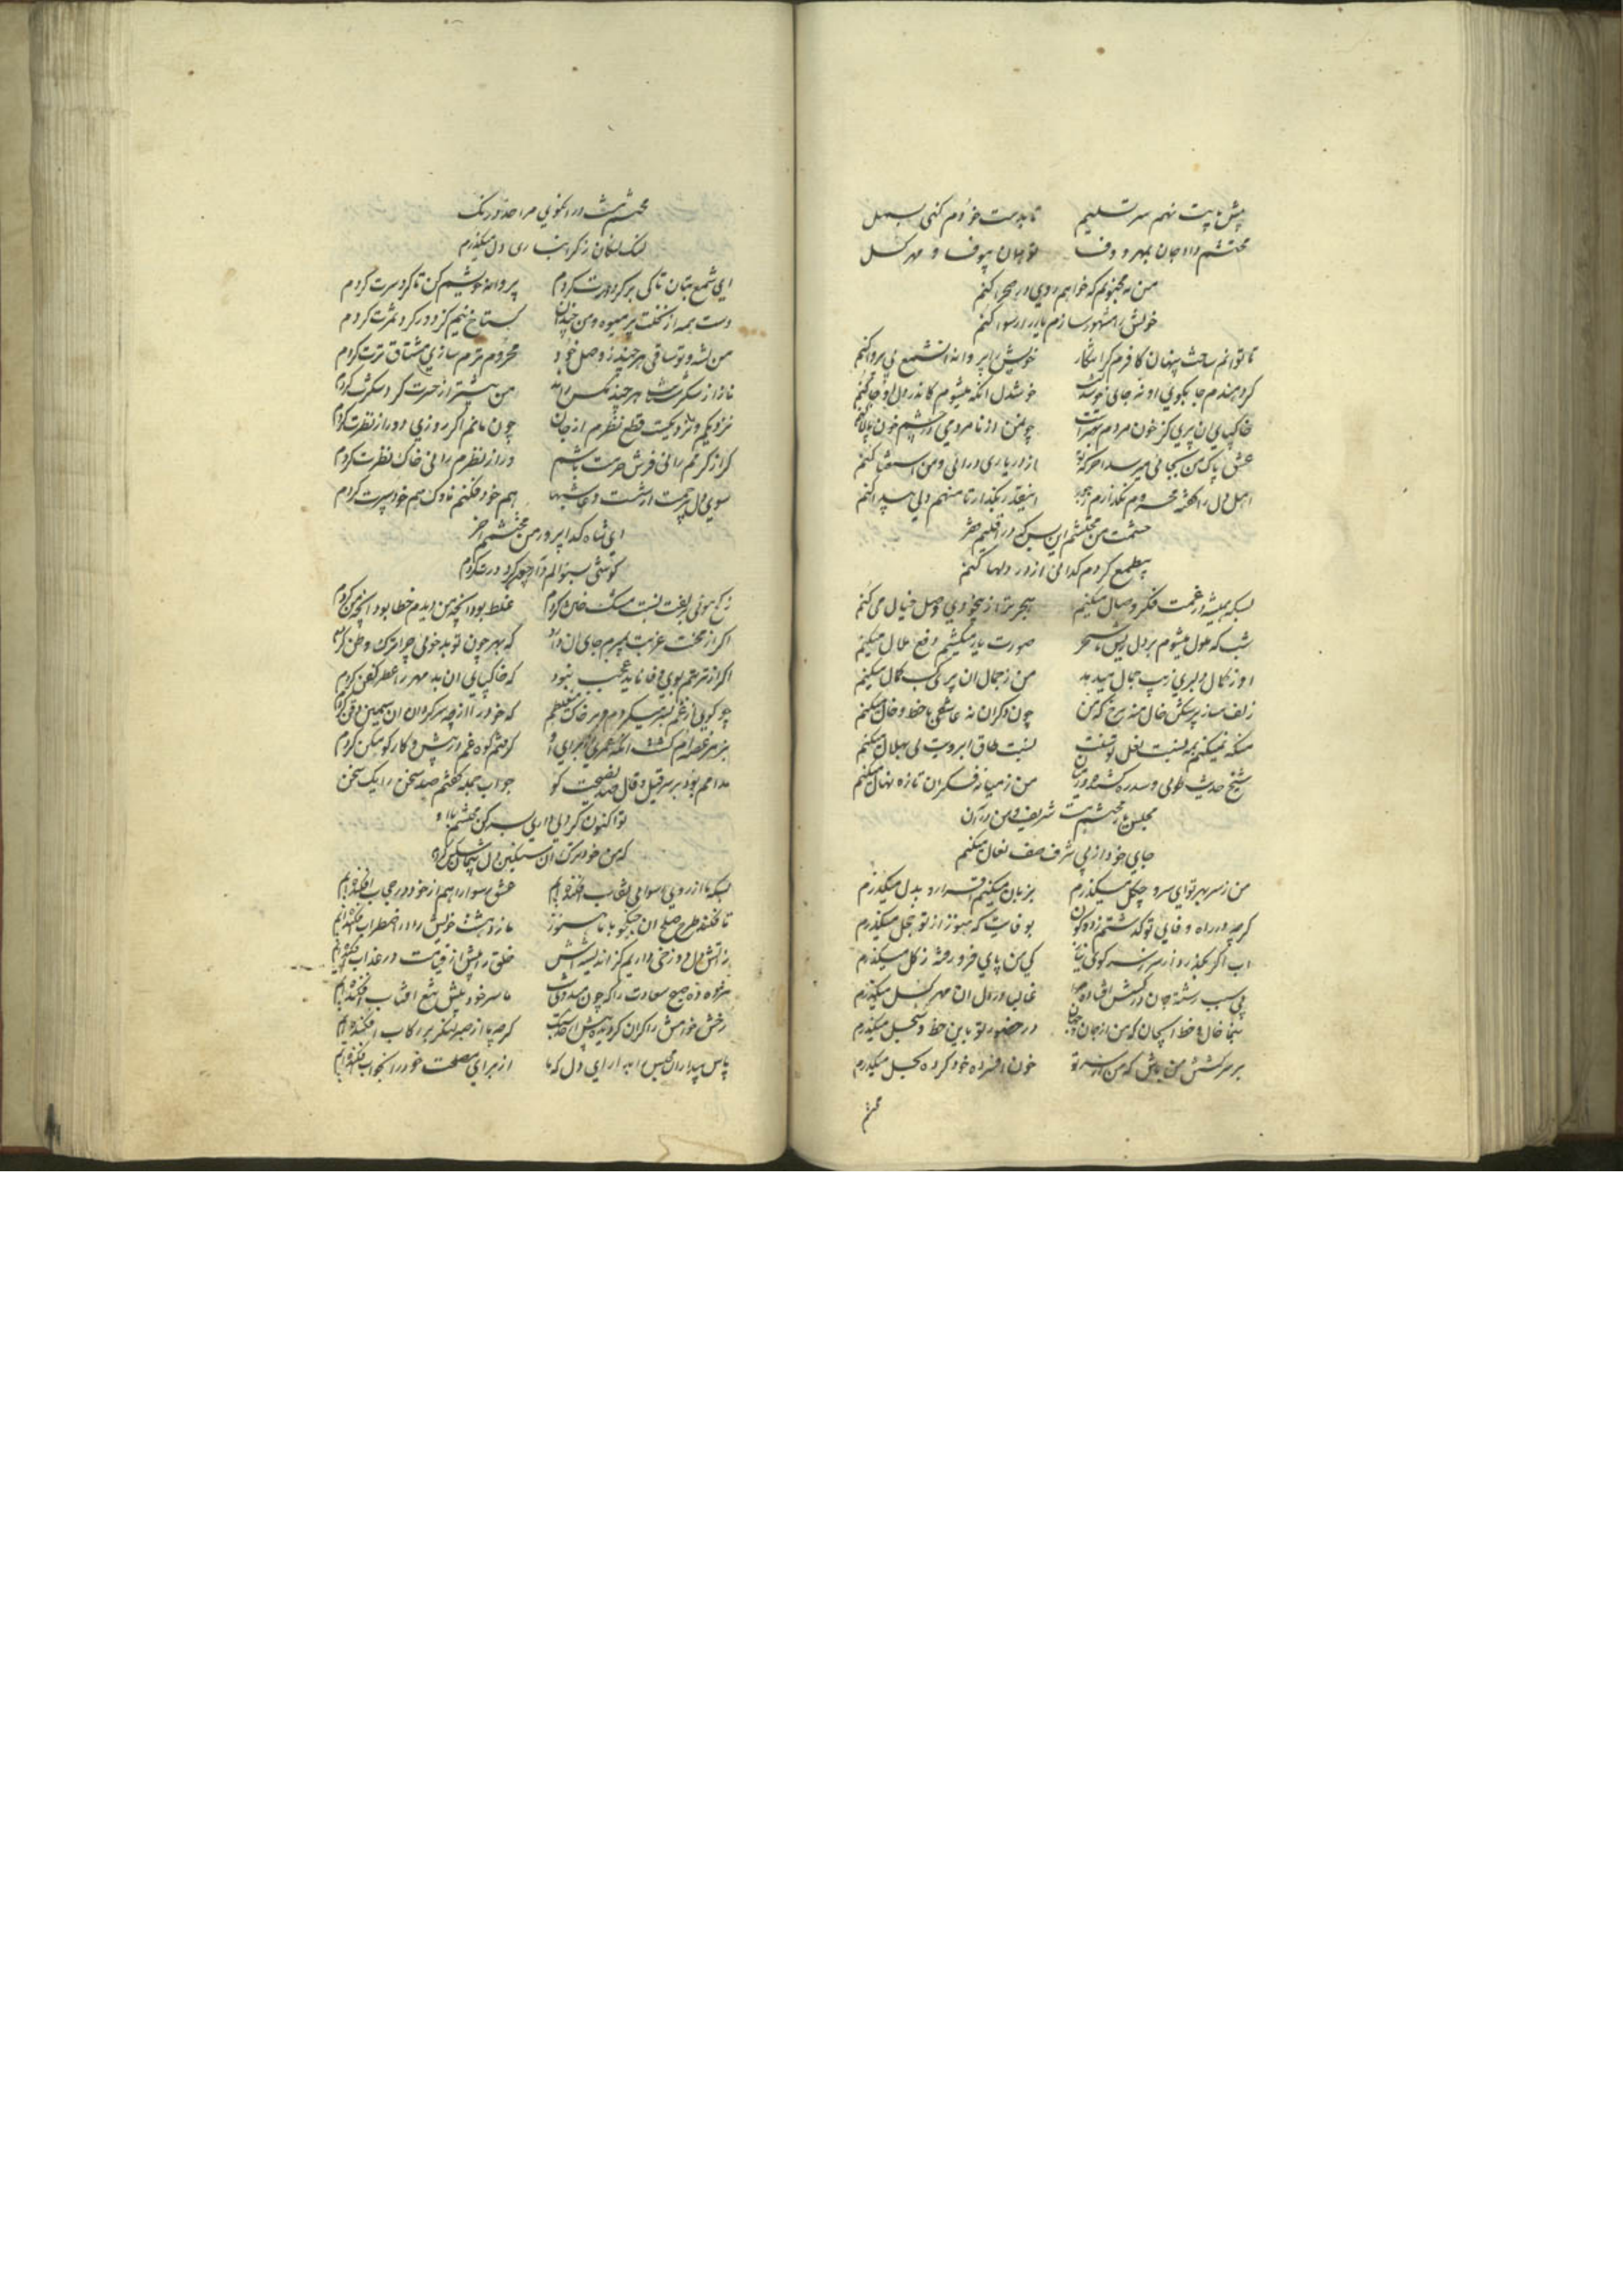 پیش پایت نهم سر تسلیم تا بدست خودم کنی بسمل
محتشم داد جان بمهر و وفا تو همان بیوفا و مهر گسل
من نه مجنونم که خواهم روی در صحرا کنم
خویش را مشهور سازم یار را رسوا کنم
تا توانم ساخت پنهان کافرم گر آشکار خویش را پروانه آن شمع بی پروا کنم
خوشدل آنکه میشوم کاندر دل او جا کنم
خاکپای آن پری کز خون مردم بهتر است چو من از نامردمی در چشم خون پالا کنم
عشق پاک من بجائی میرسد از در یاری درائی و من استغنا کنم
اهل دل را گفته محروم نگذارم ز جور اینقدر بگذار تا منهم دلی پیدا کنم
حشمت من محتشم این بس که در اقلیم فقر
بیطمع گردم گدائی از در دلها کنم
بسکه همیشه در غمت فکر وصال میکنم هجر بتر از بیخودی وصل خیال می کنم
شب که ملول میشوم بر دل ریش تا سحر صورت یار میکشم دفع ملال میکنم
او ز کمال دلبری زیب جمال میدهد من ز جمال آن پری کسب کمال میکنم
زلف مساز پرشکن خال منه برخ که من چون دگران نه عاشقی با خط و خال میکنم
منکه نمیکنم بمه نسبت نعل توسنت نسبت طاق ابرویت کی بهلال میکنم
شیخ حدیث طوبی و سدره کشید در میان من ز میانه فکر آن تازه نهال میکنم
مجلس محتشم بهشت شریف و من در آن
جای خود از پی شرف صف نعال میکنم
من ز سر مهر تو ای سرو چگل میگذرم بزبان میکنم اقرار و بدل میگذرم
گرچه در راه وفای تو گذشتم ز دو کون بوفایت که هنوز از تو خجل میگذرم
آب اگر بگذرد از سر کی من پای فرو رفته ز گل میگذرم
غالبا در دل آن مهر گسل میگذرم
در حضور تو باین خط و سجل میگذرم
بر سر کشتن من باش که من از سر تو خون افسرده خود کرده بحل میگذرم
محتشم
محتشم در انکوی مرا حد درنگ
لنگ لنگان ز گرانباری دل میگذرم
ای شمع بتان تا کی بر گرد درت گردم پروانه خویشم کن تا گرد سرت گردم
دست همه از نخلت پر میوه و من چندان گستاخ نیم کز دور گرد ثمرت گردم
من تشنه و تو ساقی هر چند ز وصل خود محرومترم سازی مشتاق ترت گردم
نزدیکم و نزدیکست قطع نظرم از جان چون مانم اگر روزی دور از نظرت گردم
گر از کرمم رانی فرش حرمت باشم ور از نظرم رانی خاک نظرت گردم
هم خود فکنم ناوک هم خود سپرت گردم
ای شاه گدا پرور من محتشمم آخر
کو شئی بسئوالم
ز کج هوئی بزلفت نسبت مشک ختن کردم غلط بود آنچه من دیدم خطا بود آنچه من کردم
اگر از محنت غربت بمیرم جای آن دارد که بهر چون تو بدخوئی چرا ترک وطن کردم
اگر از تربتم بوی وفا ناید عجب نبود که خاکپای آن بد مهر را عطر کفن کردم
چو گوئی از غم بسر میگردم و بر خاک میغلطم که خود را از چه سرگردان آن سیمین ذقن کردم
گرفتم کوه غم در پیش و کار کوهکن کردم
مدامم بود بر سر قیل و قال صد نصیحت گو جواب جمله گفتم صد سخن را یک سخن کردم
تو اکنون گر دلی داری بسر کن محتشم با او
که من خود ترک آن سنگین دل پیمان شکن کردم
بسکه ما از روی رسوائی نقاب افکنده ایم عشق رسوا را هم از خود در حجاب افکنده ایم
تا فکند طرح صلح آن جنگجو با ما هنوز ما ز وحشت خویش را در اضطراب افکنده ایم
ز آتش دل دوزخی داریم کز اندیشه اش خلق را پیش از قیامت در عذاب افکنده ایم
مژده ده صبح سعادت را که چون ما سر خود پیش تیغ آفتاب افکنده ایم
رخش خوابش را گران کردیم گرچه ما از صبر لنگر بر رکاب افکنده ایم
پاس بیداران مجلس را بدار ای دل که ما از برای مصلحت خود را بخواب افکنده ایم